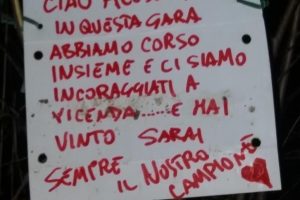 CIAO
IN QUESTA GARA
ABBIAMO CORSO
INSIEME E CI SIAMO
INCORAGGIATI A
VICENDA......E HAI
VINTO SARAI
SEMPRE IL NOSTRO
CAMPIONE